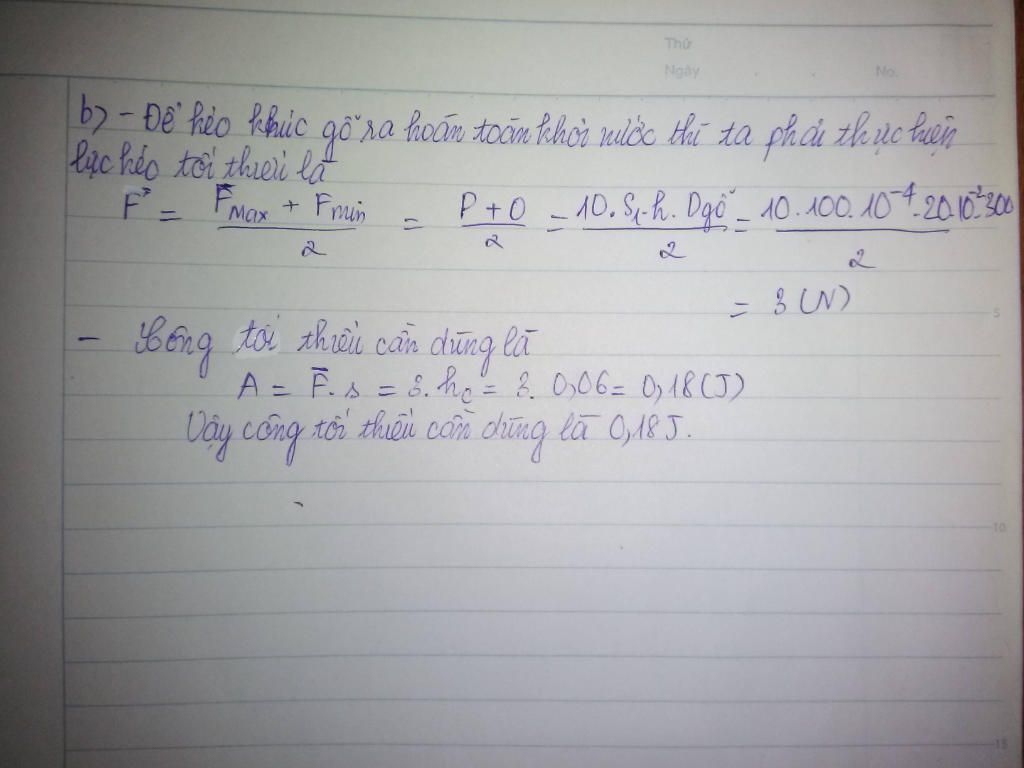 Thứ
Ngày . . No.
b) - Để kéo khúc gỗ ra hoàn toàn khỏi nước thì ta phải thực hiện
lực kéo tối thiểu là
F = (F_Max + F_min)/2 = (P + 0)/2 = (10.S₁.h.Dgỗ)/2 = (10.100.10⁻⁴.20.10⁻².300)/2
= 3 (N)
- Công tối thiểu cần dùng là
A = F.s = 3.h_c = 3.0,06 = 0,18 (J)
Vậy công tối thiểu cần dùng là 0,18J.
5
10
15